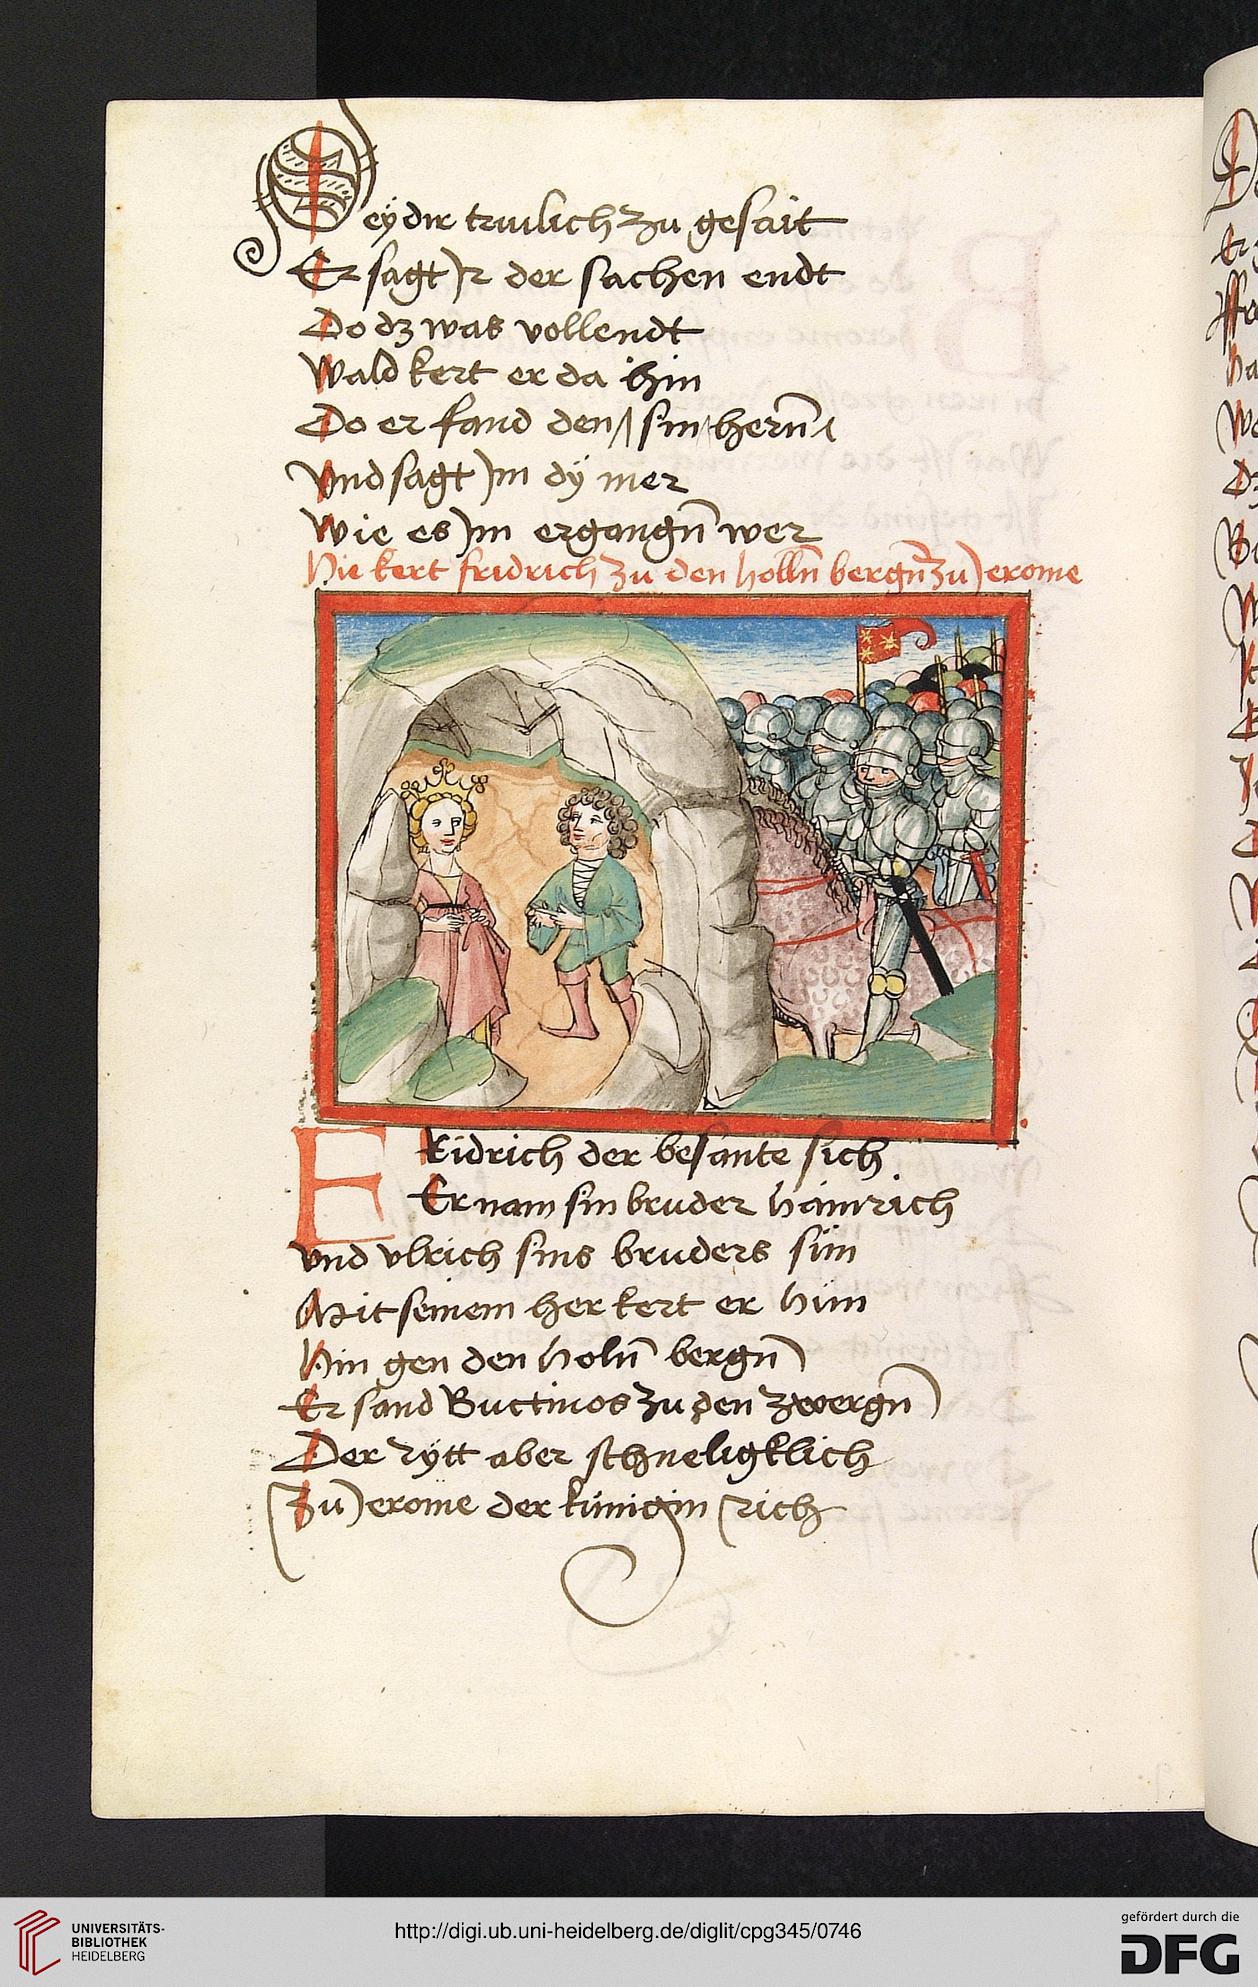 Sey dir trulich zu gesait
Er sagt Jr der sachen endt
Do dz was vollendt
Wald kert er da ihin
Do er fand den sin hern̄
Vnd sagt Jm dÿ mer
Wie es Jm ergangn̄ wer
Hie kert fridrich zu den holln̄ bergn̄ zu Jerome
FRidrich der besante sich
Er nam sin bruder hainrich
vnd vlrich sins bruders sün
Mit seinem her kert er hün
Hin gen den holn̄ bergn̄
Er sand Buctinos zu den zwergn̄
Der rÿtt aber schneligklich
Zu Jerome der künigin rich
UNIVERSITÄTS-
BIBLIOTHEK
HEIDELBERG
http://digi.ub.uni-heidelberg.de/diglit/cpg345/0746
gefördert durch die
DFG